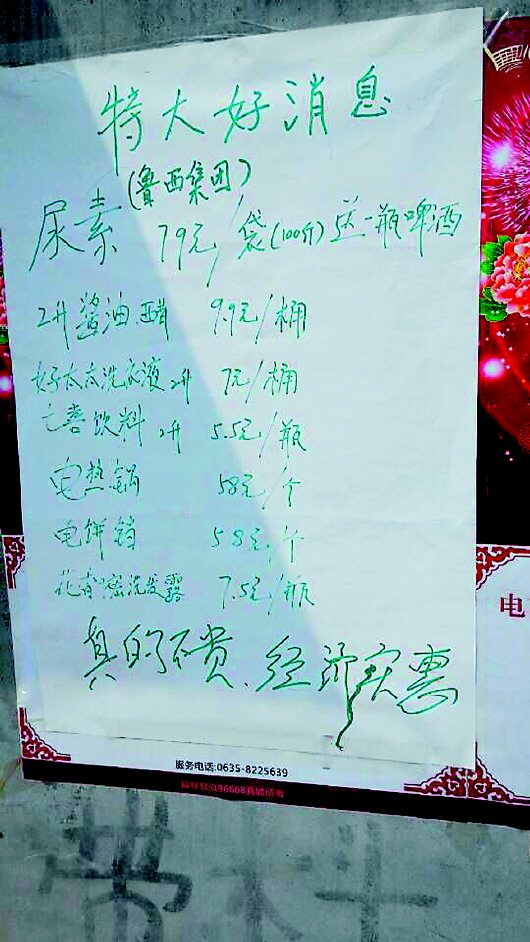 特大好消息
(鲁西集团)
尿素 79元/袋(100斤)送一瓶啤酒
2升酱油.醋 9.9元/桶
好太太洗衣液2升 7元/桶
七喜饮料2升 5.5元/瓶
电热锅 58元/个
电饼铛 58元/个
花香 洗发露 7.5元/瓶
真的不贵.经济实惠
电
服务电话:0635-8225639
96668商城所有
带 料